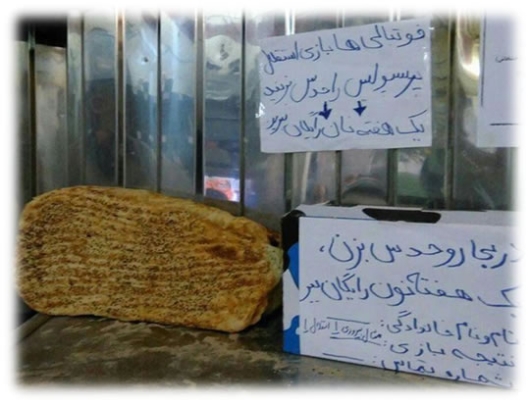 فوتبالی ها بازی استقلال
پرسپولیس را حدس بزنید
یک هفته نان رایگان ببرید
دربی رو حدس بزن،
یک هفته نون رایگان ببر
نام و نام خانوادگی:
نتیجه بازی:
شماره تماس: